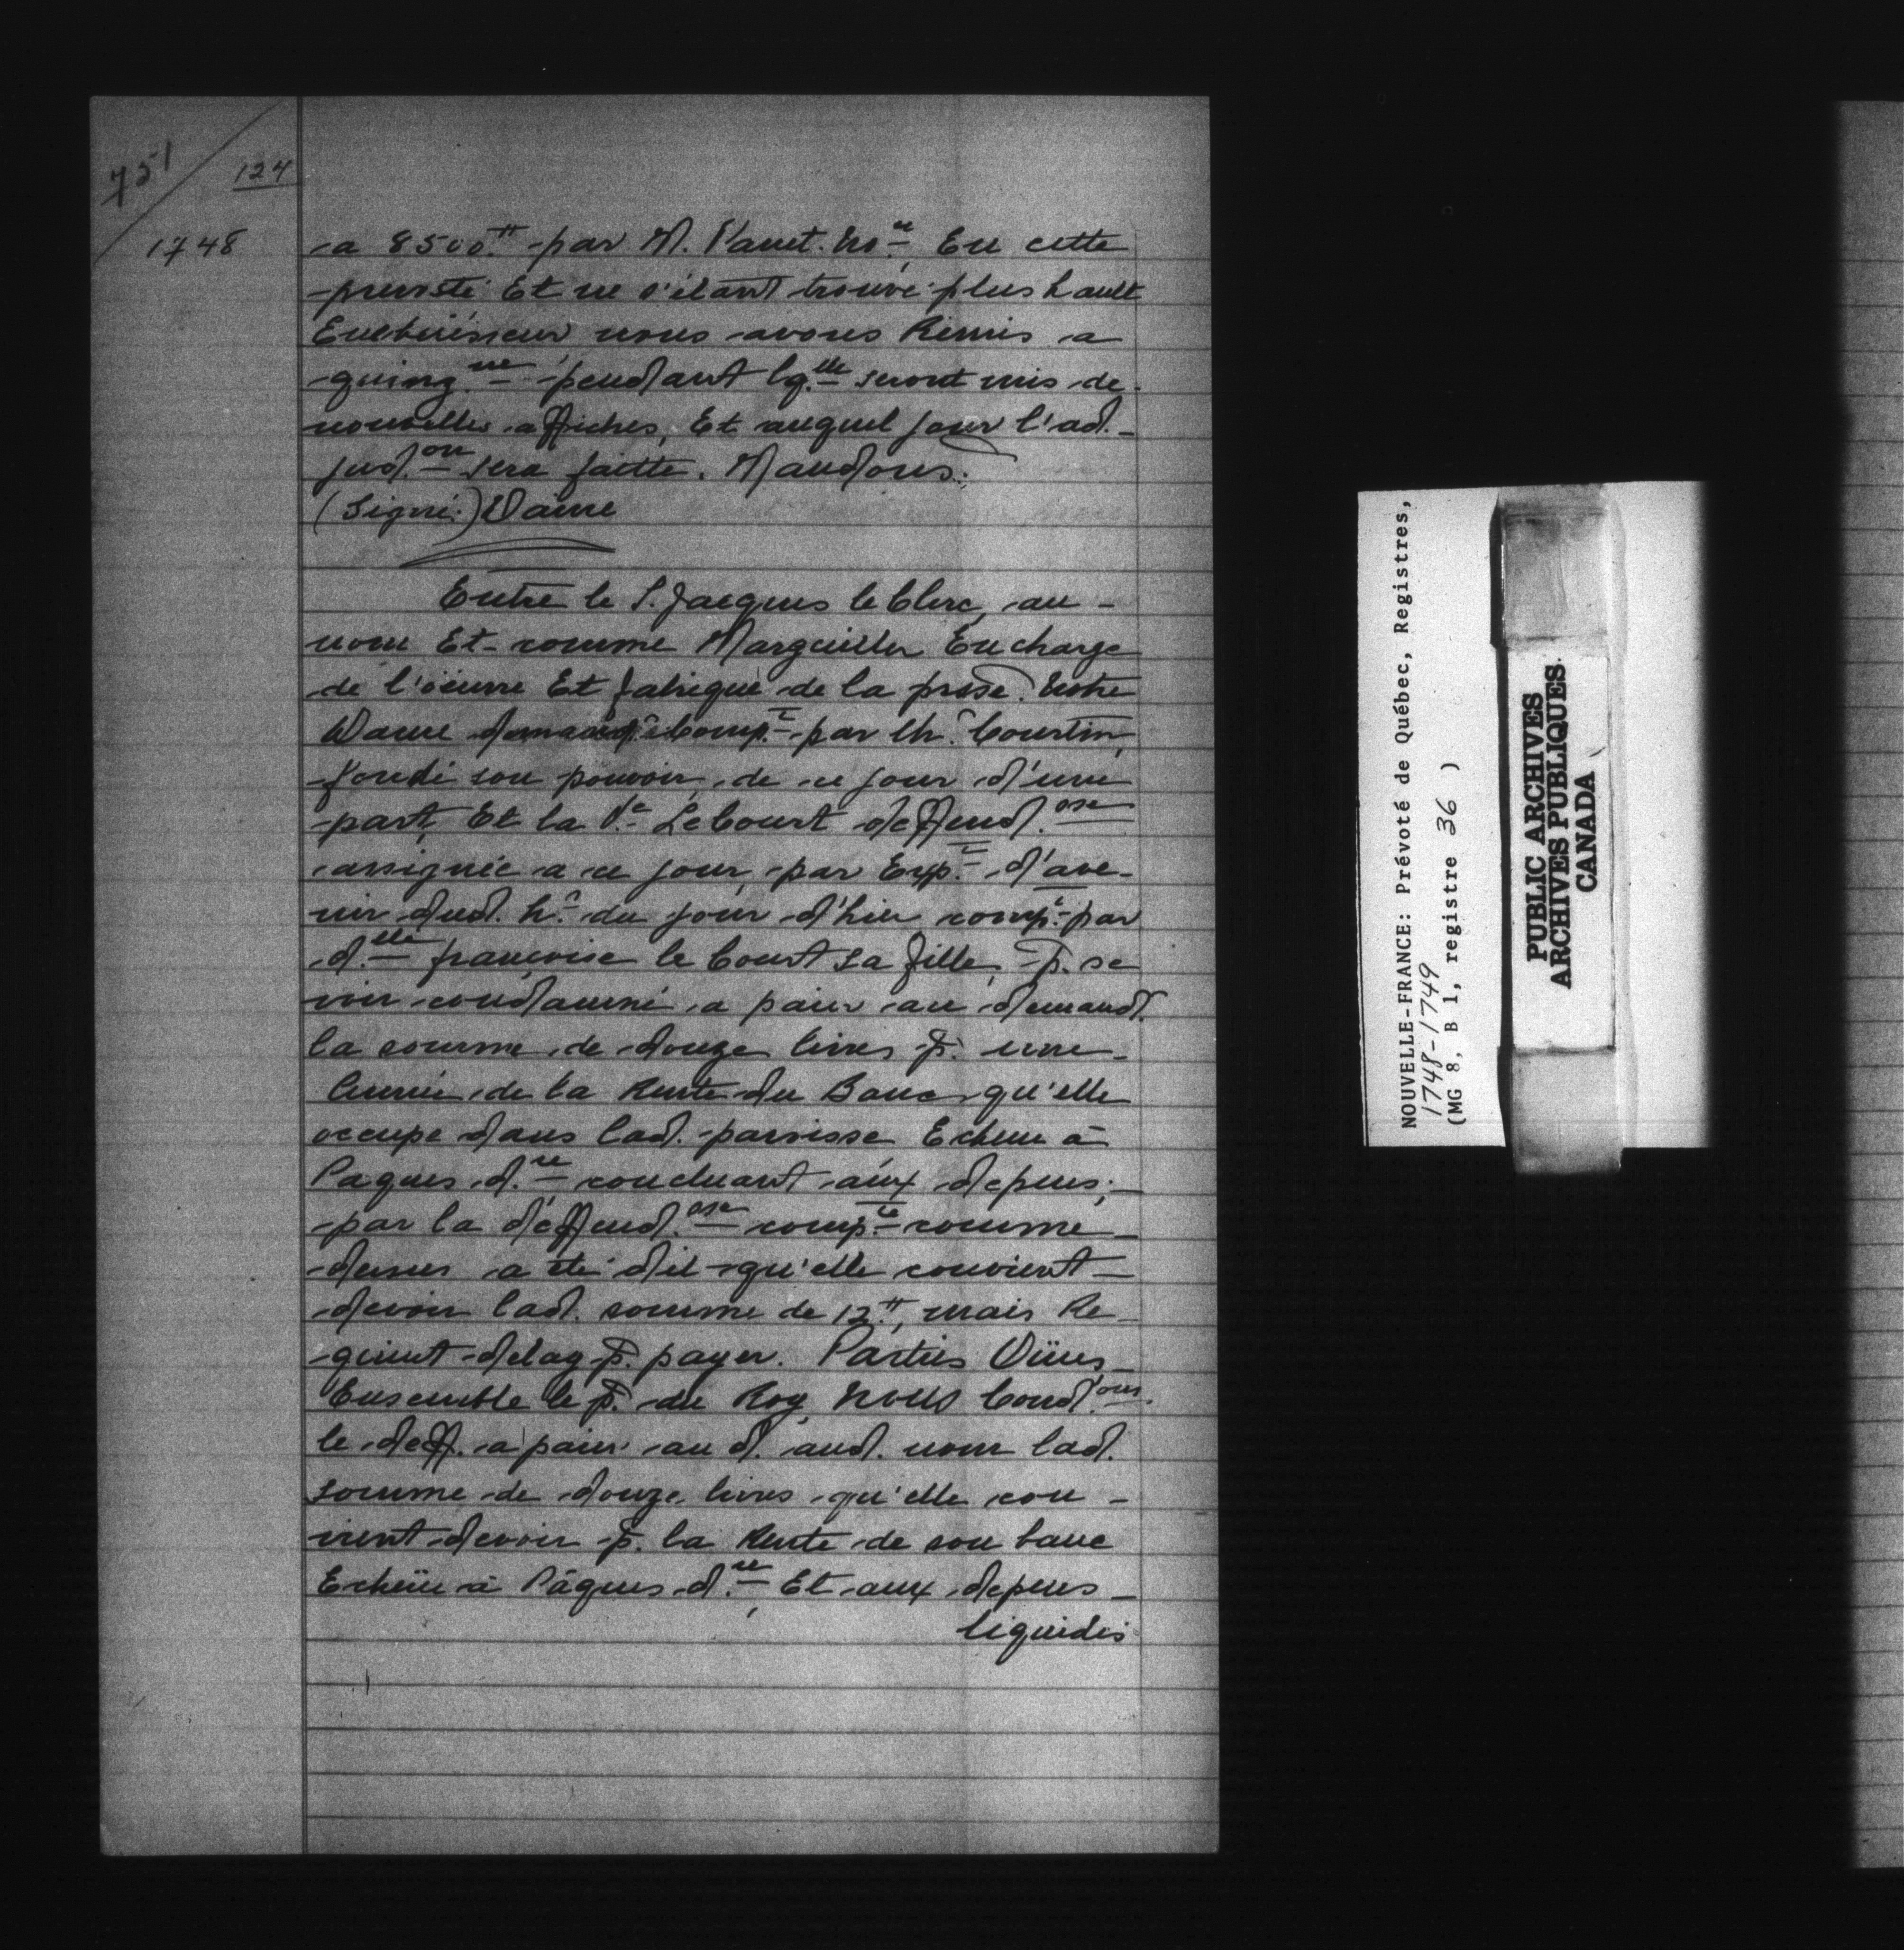 751
124
1748
a 8500.tt par M. Panet. No.re En cette
prevosté Et ne s'étant trouvé plus hault
Encherisseur nous avons Remis a
quinz.ne pendant lq.lle seront mis de
nouvelles affiches, Et auquel jour l'ad-
jud.on sera faitte. Mandons.
(Signé:) Daine
Entre le S. Jacques le Clerc, au-
nom Et comme Marguiller En charge
de l'oeuvre Et fabrique de la prsse. Notre
Dame demand.r Comp.t par Ch.r Courtin,
fondé son pouvoir, de ce jour d'une
part, Et la V.e LeCourt deffend.sse
assignée a ce jour, par Exp.t d'ave-
nir dud. h.r du jour d'hier comp.te par
d.elle françoise le Court sa fille, p. se
voir condamné a paier au demand.
la somme de douze livres p. une
Année de la Rente du Banc qu'elle
occupe dans lad. paroisse Echeue à
Paques d.re concluant aux depens;
par la deffend.sse comp.te comme
dessus a été dit qu'elle convient
devoir lad. somme de 12.tt, mais Re-
quiert delay p. payer. Parties Oüies
Ensemble le p. du Roy Nous Cond.ons
le deff. a paier au d. aud. nom lad.
somme de douze livres qu'elle con-
vient devoir p. la Rente de son banc
Echeüe à Pâques d.re, Et aux depens
liquidés
NOUVELLE-FRANCE: Prévoté de Québec, Registres,
1748-1749
(MG 8, B 1, registre 36 )
PUBLIC ARCHIVES
ARCHIVES PUBLIQUES
CANADA